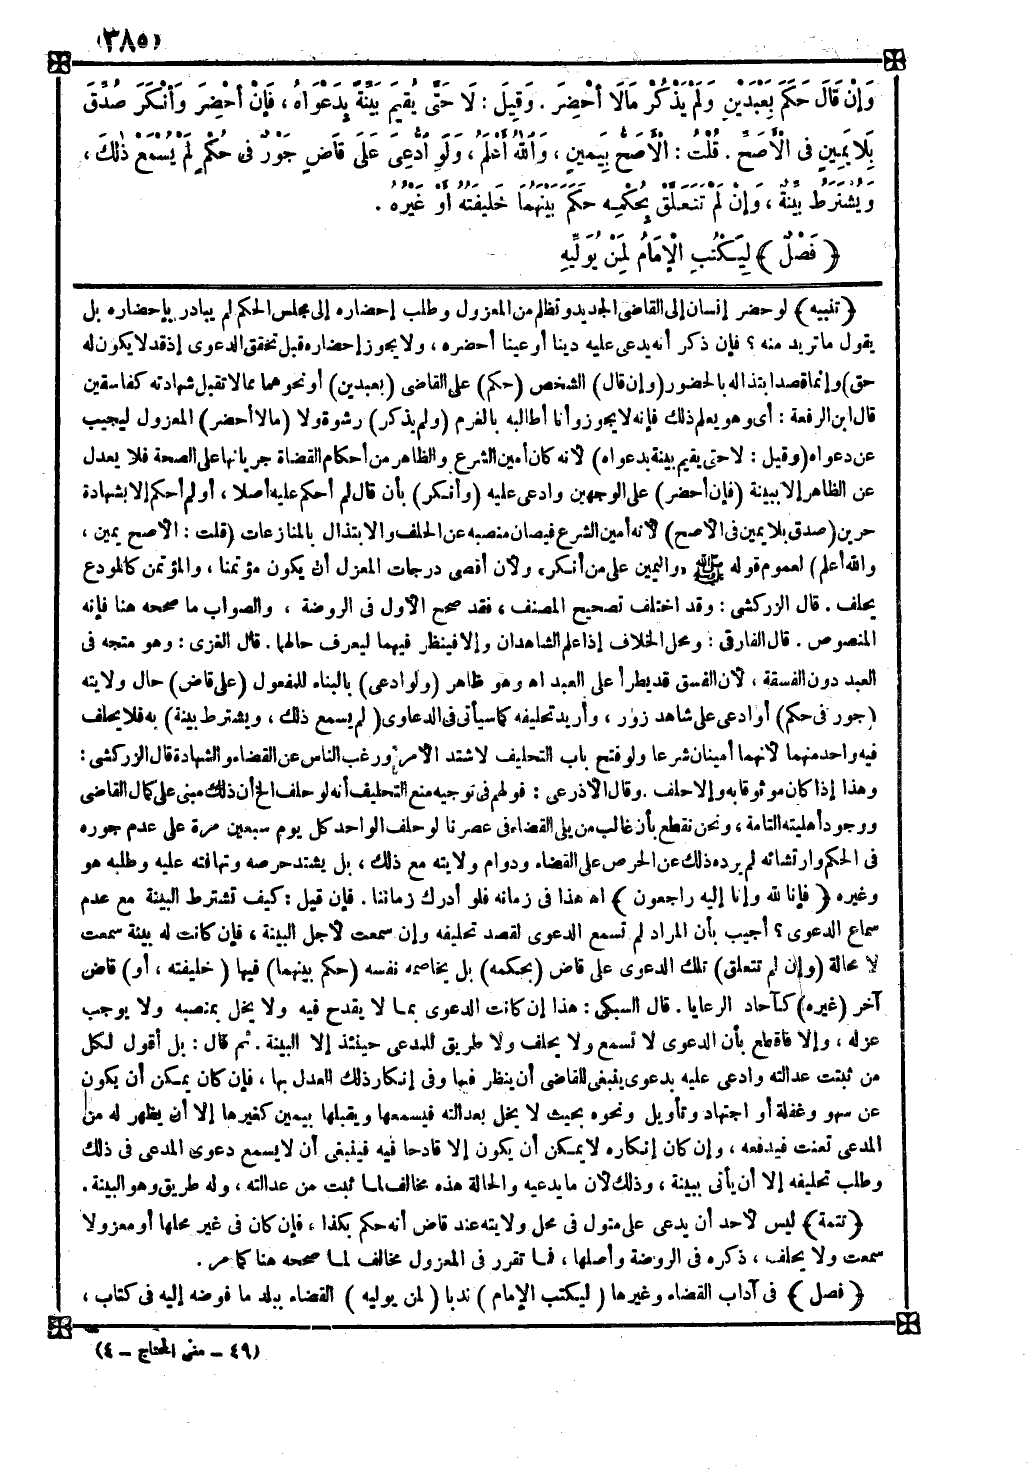 (٣٨٥)
وَإِنْ قَالَ حَكَمَ بِعَبْدَيْنِ وَلَمْ يَذْكُرْ مَالًا أُحْضِرَ . وَقِيلَ : لَا حَتَّى يُقِيمَ بَيِّنَةً بِدَعْوَاهُ ، فَإِنْ أُحْضِرَ وَأَنْكَرَ صُدِّقَ
بِلَا يَمِينٍ فِى الْأَصَحِّ . قُلْتُ : الْأَصَحُّ بِيَمِينٍ ، وَاللهُ أَعْلَمُ ، وَلَوِ ادُّعِىَ عَلَى قَاضٍ جَوْرٌ فِى حُكْمٍ لَمْ يُسْمَعْ ذٰلِكَ ،
وَيُشْتَرَطُ بَيِّنَةٌ ، وَإِنْ لَمْ تَتَعَلَّقْ بِحُكْمِهِ حَكَمَ بَيْنَهُمَا خَلِيفَتُهُ أَوْ غَيْرُهُ .
﴿ فَصْلٌ ﴾ لِيَكْتُبِ الْإِمَامُ لِمَنْ يُوَلِّيهِ
﴿تنبيه﴾ لو حضر إنسان إلى القاضى الجديد وتظلم من المعزول وطلب إحضاره إلى مجلس الحكم لم يبادر بإحضاره بل
يقول ما تريد منه ؟ فإن ذكر أنه يدعى عليه دينا أو عينا أحضره ، ولا يجوز إحضاره قبل تحقق الدعوى إذ قد لا يكون له
حق) وإنما قصد ابتذاله بالحضور (وإن قال) الشخص (حكم) على القاضى (بعبدين) أو نحوهما مما لا تقبل شهادته كفاسقين
قال ابن الرفعة : أى وهو يعلم ذلك فإنه لا يجوز وأنا أطالبه بالغرم (ولم يذكر) رشوة ولا (مالا أحضر) المعزول ليجيب
عن دعواه (وقيل : لا حتى يقيم بينة بدعواه) لأنه كان أمين الشرع والظاهر من أحكام القضاة جريانها على الصحة فلا يعدل
عن الظاهر إلا ببينة (فإن أحضر) على الوجهين وادعى عليه (وأنكر) بأن قال لم أحكم عليه أصلا ، أو لم أحكم إلا بشهادة
حرين (صدق بلا يمين فى الأصح) لأنه أمين الشرع فيصان منصبه عن الحلف والابتذال بالمنازعات (قلت : الأصح بيمين ،
والله أعلم) لعموم قوله ﷺ «واليمين على من أنكر» ولأن أقصى درجات المعزل أن يكون مؤتمنا ، والمؤتمن كالمودع
يحلف . قال الزركشى : وقد اختلف تصحيح المصنف ، فقد صحح الأول فى الروضة ، والصواب ما صححه هنا فإنه
المنصوص . قال الفارقى : ومحل الخلاف إذا علم الشاهدان وإلا فينظر فيهما ليعرف حالهما . قال الغزى : وهو متجه فى
العبد دون الفسقة ، لأن الفسق قد يطرأ على العبد اه وهو ظاهر (ولو ادعى) بالبناء للمفعول (على قاض) حال ولايته
(جور فى حكم) أو ادعى على شاهد زور ، وأريد تحليفه كما سيأتى فى الدعاوى (لم يسمع ذلك ، ويشترط بينة) به فلا يحلف
فيه واحد منهما لأنهما أمينان شرعا ولو فتح باب التحليف لاشتد الأمر ورغب الناس عن القضاء والشهادة قال الزركشى :
وهذا إذا كان موثوقا به وإلا حلف . وقال الأذرعى : قولهم فى توجيه منع التحليف أنه لو حلف الخ أن ذلك مبنى على كمال القاضى
ووجود أهليته التامة ، ونحن نقطع بأن غالب من يلى القضاء فى عصرنا لو حلف الواحد كل يوم سبعين مرة على عدم جوره
فى الحكم وارتشائه لم يرده ذلك عن الحرص على القضاء ودوام ولايته مع ذلك ، بل يشتد حرصه وتهافته عليه وطلبه هو
وغيره ﴿ فإنا لله وإنا إليه راجعون ﴾ اه هذا فى زمانه فلو أدرك زماننا . فإن قيل : كيف تشترط البينة مع عدم
سماع الدعوى ؟ أجيب بأن المراد لم تسمع الدعوى لقصد تحليفه وإن سمعت لأجل البينة ، فإن كانت له بينة سمعت
لا محالة (وإن لم تتعلق) تلك الدعوى على قاض (بحكمه) بل يخاصمه نفسه (حكم بينهما) فيها (خليفته ، أو) قاض
آخر (غيره) كآحاد الرعايا . قال السبكى : هذا إن كانت الدعوى بما لا يقدح فيه ولا يخل بمنصبه ولا يوجب
عزله ، وإلا فاقطع بأن الدعوى لا تسمع ولا يحلف ولا طريق للمدعى حينئذ إلا البينة . ثم قال : بل أقول لكل
من ثبتت عدالته وادعى عليه بدعوى ينبغى للقاضى أن ينظر فيها وفى إنكار ذلك العدل بها ، فإن كان يمكن أن يكون
عن سهو وغفلة أو اجتهاد وتأويل ونحوه بحيث لا يخل بعدالته فيسمعها ويقبلها بيمين كغيرها إلا أن يظهر له من
المدعى تعنت فيدفعه ، وإن كان إنكاره لا يمكن أن يكون إلا قادحا فيه فينبغى أن لا يسمع دعوى المدعى فى ذلك
وطلب تحليفه إلا أن يأتى ببينة ، وذلك لأن ما يدعيه والحالة هذه مخالف لما ثبت من عدالته ، وله طريق وهو البينة .
﴿تتمة﴾ ليس لأحد أن يدعى على متول فى محل ولايته عند قاض أنه حكم بكذا ، فإن كان فى غير محلها أو معزولا
سمعت ولا يحلف ، ذكره فى الروضة وأصلها ، فما تقرر فى المعزول مخالف لما صححه هنا كما مر .
﴿ فصل ﴾ فى آداب القضاء وغيرها (ليكتب الإمام) ندبا (لمن يوليه) القضاء ببلد ما فوضه إليه فى كتاب ،
(٤٩ – مغنى المحتاج – ٤)